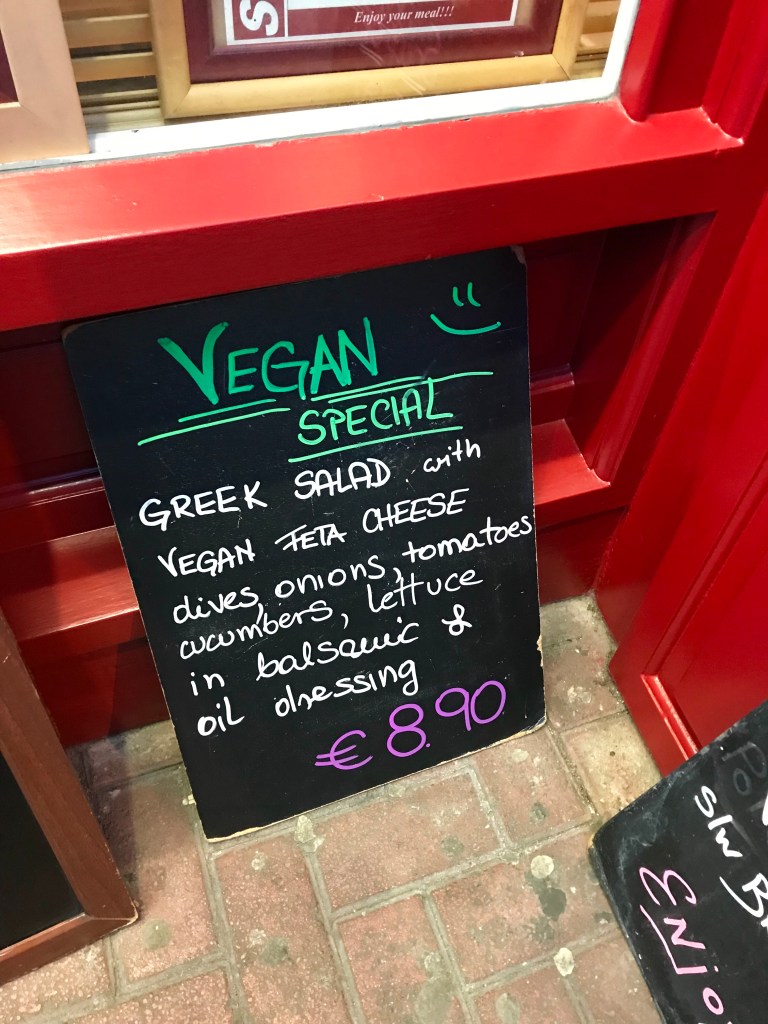 Enjoy your meal!!!
VEGAN
SPECIAL
GREEK SALAD with
VEGAN FETA CHEESE
olives, onions, tomatoes
cucumbers, lettuce
in balsamic &
oil dressing
€ 8.90
S/W
ENJO